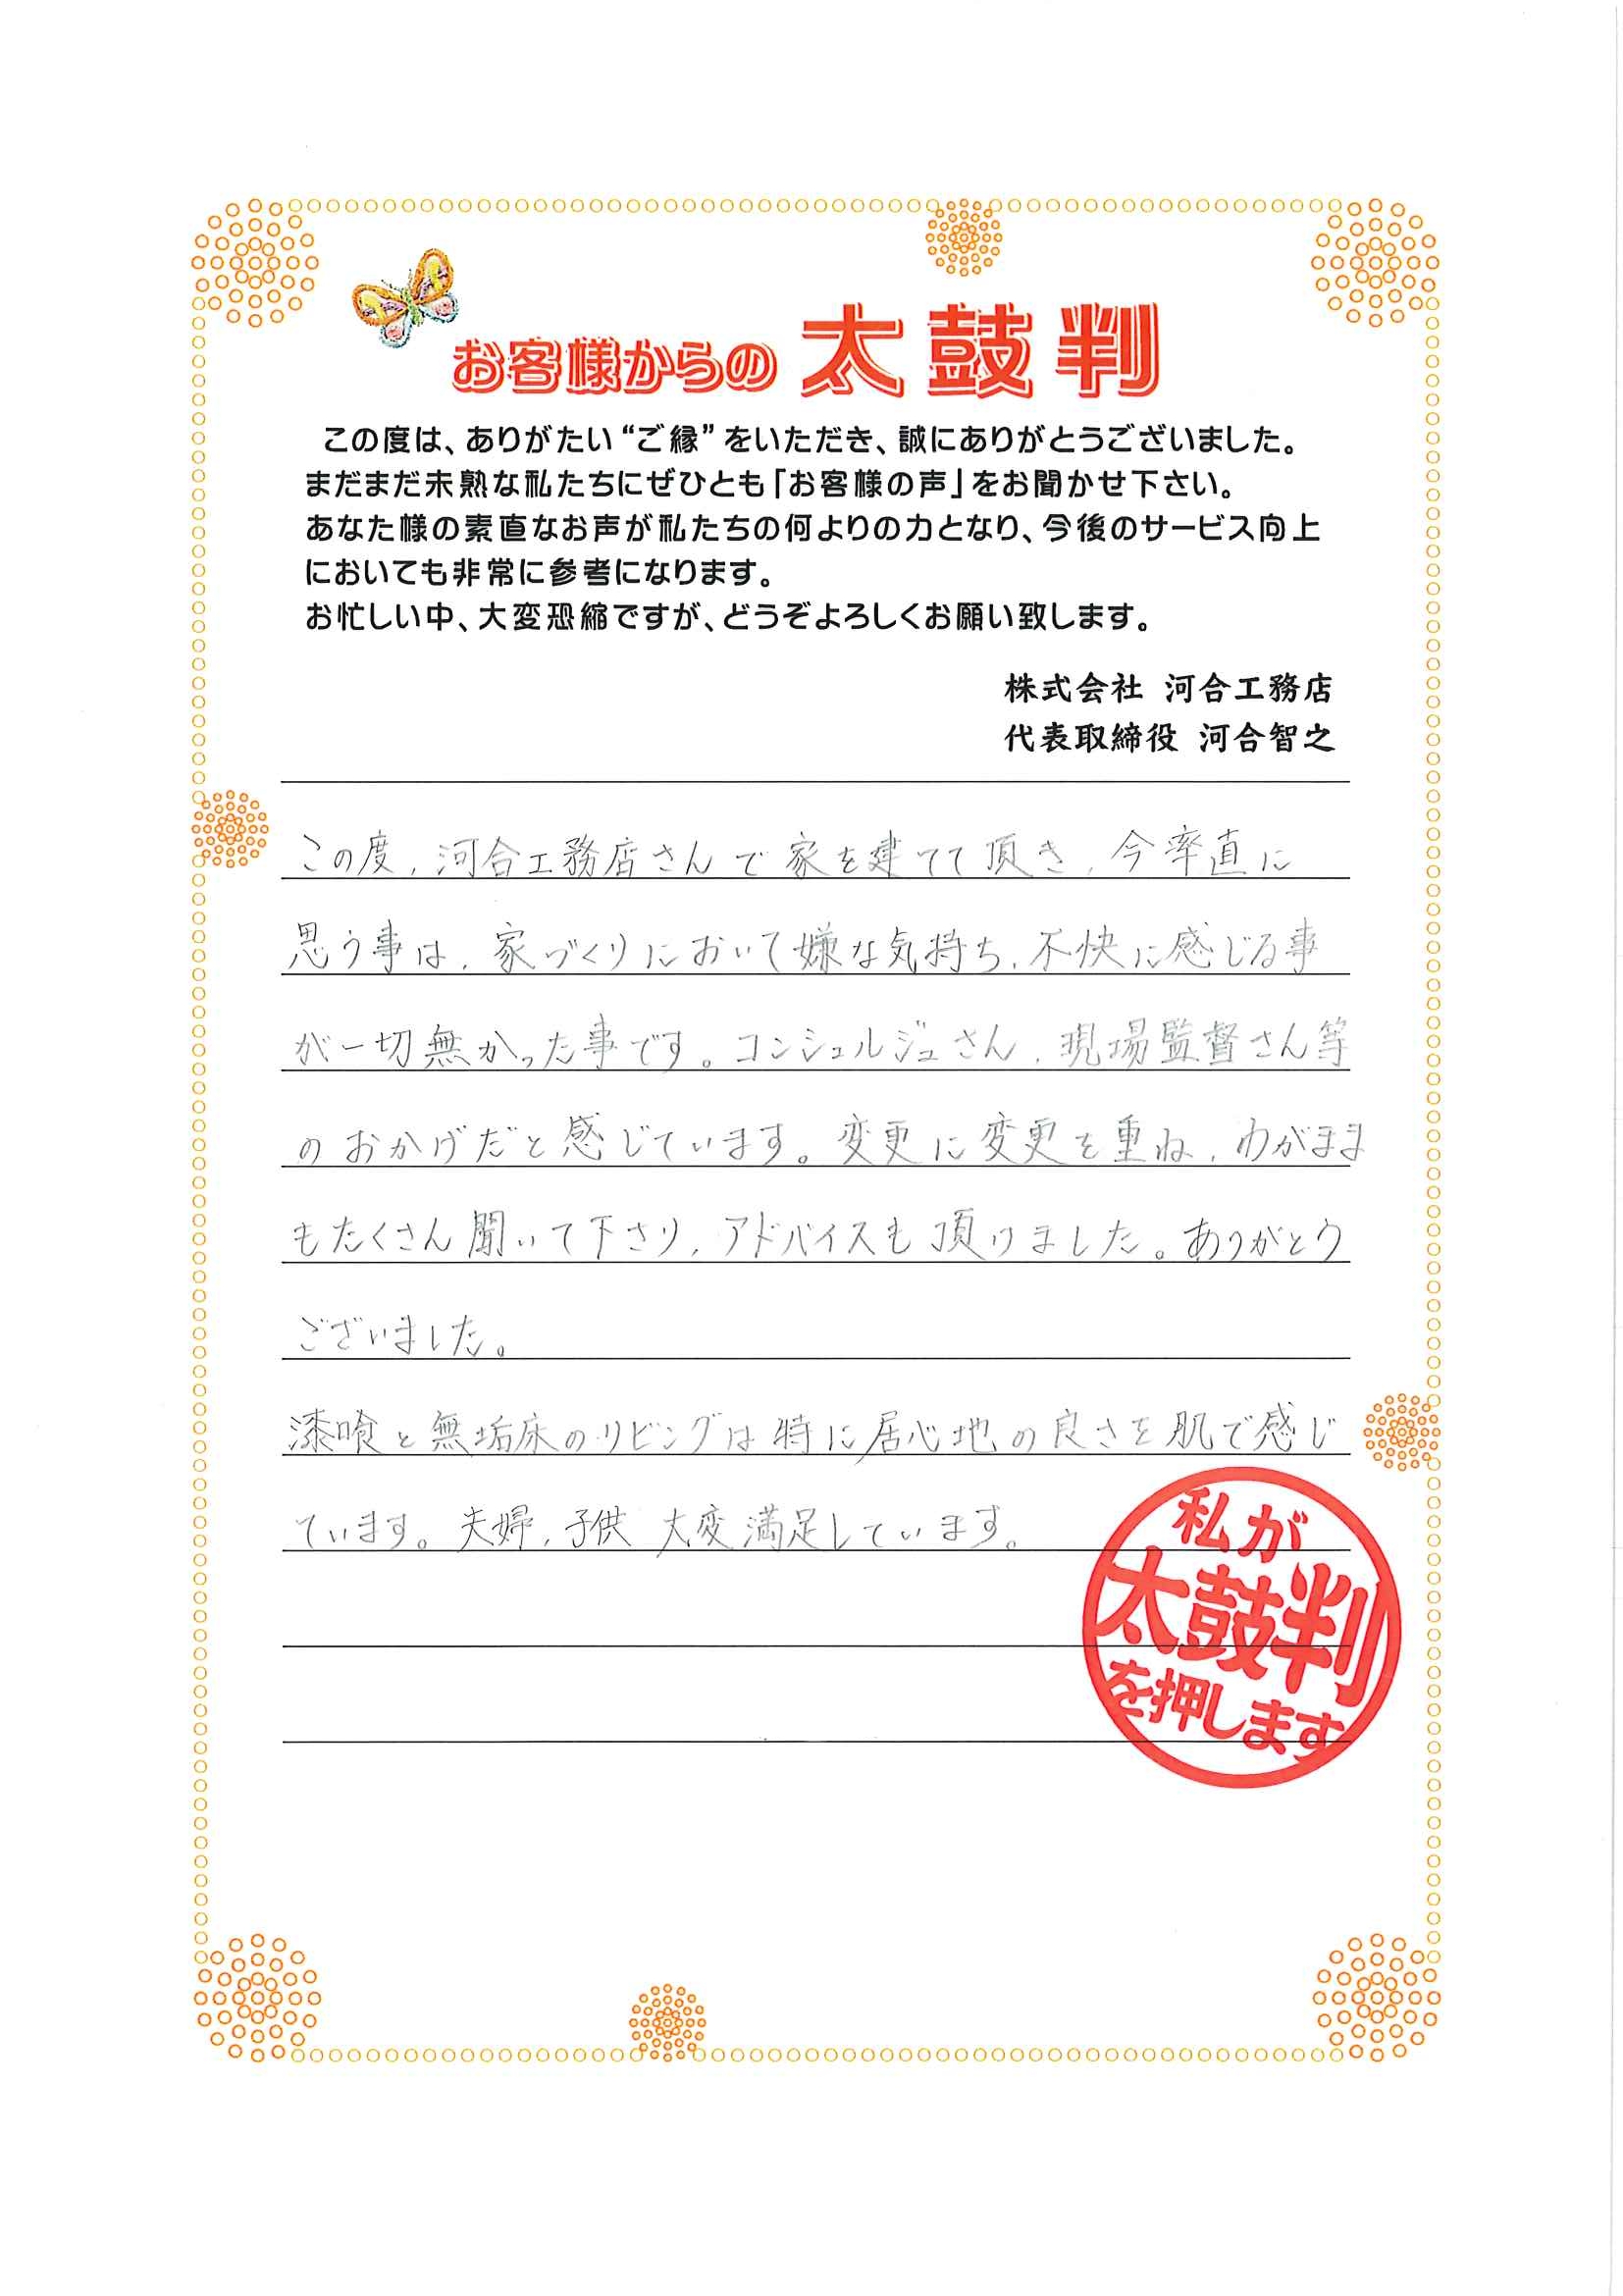 お客様からの 太鼓判
この度は、ありがたい“ご縁”をいただき、誠にありがとうございました。
まだまだ未熟な私たちにぜひとも「お客様の声」をお聞かせ下さい。
あなた様の素直なお声が私たちの何よりの力となり、今後のサービス向上
においても非常に参考になります。
お忙しい中、大変恐縮ですが、どうぞよろしくお願い致します。
株式会社 河合工務店
代表取締役 河合智之
この度、河合工務店さんで家を建てて頂き、今率直に
思う事は、家づくりにおいて嫌な気持ち、不快に感じる事
が一切無かった事です。コンシェルジュさん、現場監督さん等
のおかげだと感じています。変更に変更を重ね、わがまま
もたくさん聞いて下さり、アドバイスも頂けました。ありがとう
ございました。
漆喰と無垢床のリビングは特に居心地の良さを肌で感じ
ています。夫婦、子供 大変満足しています。
私が
太鼓判
を押します